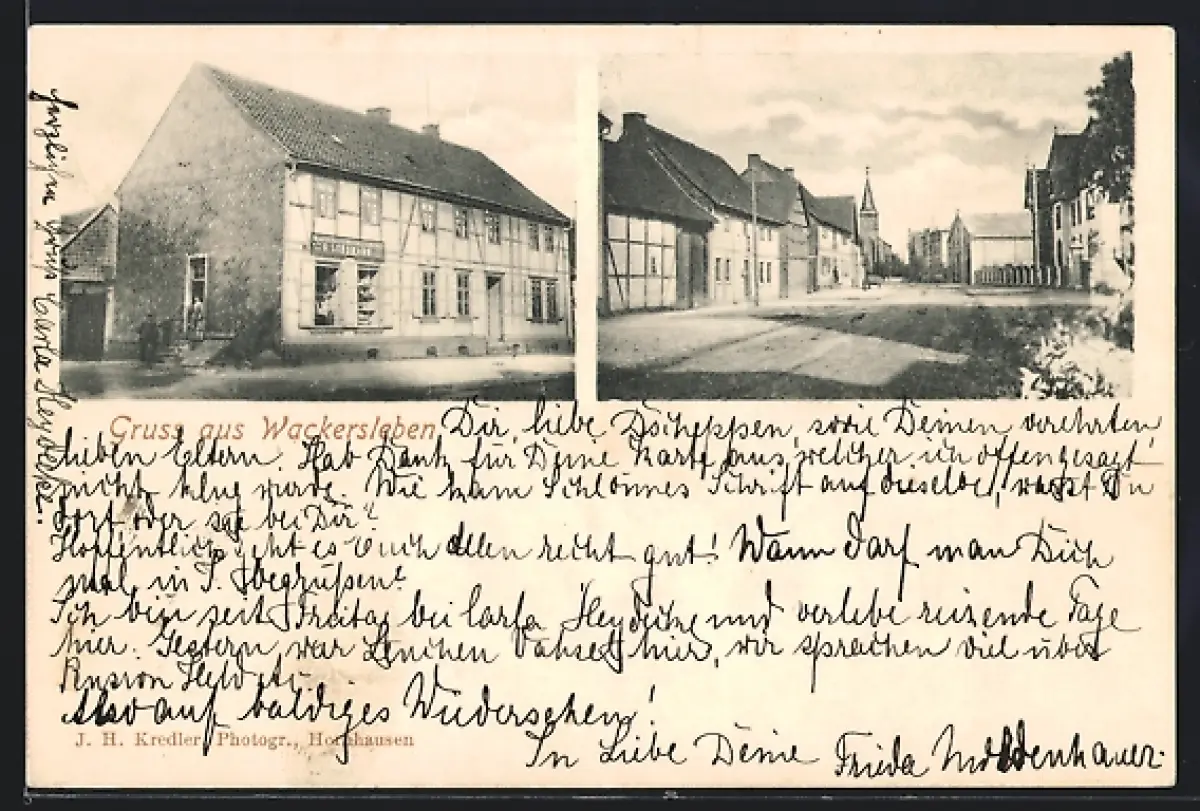 Gruss aus Wackersleben
Dir, liebe Dscheppen, sowie Deinen verehrten
lieben Eltern. Hab Dank für Deine Karte, aus welcher ich offengesagt
nicht klug wurde. Wie kam Schlönnes Schrift auf dieselbe, warst Du
dort oder sie bei Dir?
Hoffentlich geht es Euch allen recht gut! Wann darf man Dich
mal in begrüßen?
Ich bin seit Freitag bei Carla Heydecke und verlebe reizende Tage
hier. Gestern war Lenchen hier, wir sprachen viel über
Also auf baldiges Wiedersehen!
In Liebe Deine Frieda Moldenhauer.
J. H. Kredler, Photogr., Hornhausen
Herzlichen Gruß Carla Heydecke.